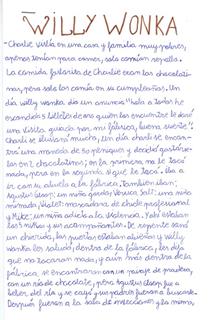 WILLY WONKA
- Charlie vivía en una casa y familia muy pobres,
apenas tenían para comer, solo comían repollo.
La comida favorita de Charlie eran los chocolati-
nes, pero solo los comía en su cumpleaños. Un
día willy wonka dio un anuncio "hola a todos he
escondido 5 billetes de oro quien los encuentre le daré
una visita guiada por mi fábrica, buena suerte".
Charlie se ilusionó mucho, un día charlie se encon-
tró una moneda de 50 peniques y decidió gastar-
los en 2 chocolatinas; en la primera no le tocó
nada, pero en la segunda si que le tocó. Iba a
ir con su abuelo a la fábrica. También iban;
Agustus Gloop: un niño gordo, Veruca Salt: una niña
mimada, Violet: mascadora de chicle profesional
y Mike: un niño adicto a la violencia. Ya estaban
los 5 niños y sus acompañantes. De repente sonó
un chirrido, las puertas estaban abiertas y willy
wonka les saludó, dentro de la fábrica, les dijo
que no tocaran nada, y aún más dentro de la
fábrica, se encontraron con un paisaje de pradera,
con un río de chocolate, pero Agustus Gloop fue a
beber del río y se cayó y sus padres fueron a buscarle.
Después fueron a la sala de invenciones y la mema,